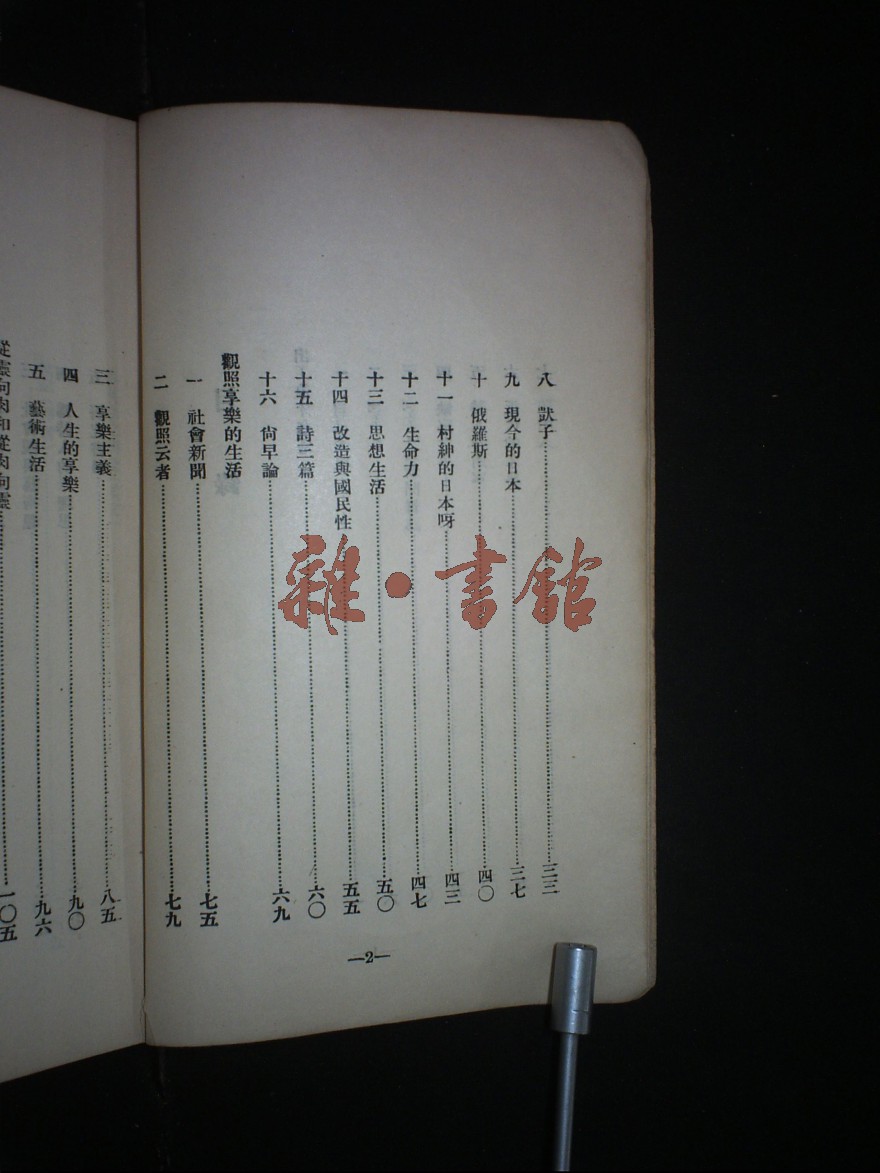 八 獃子 三三
九 現今的日本 三七
十 俄羅斯 四〇
十一 村紳的日本呀 四三
十二 生命力 四七
十三 思想生活 五〇
十四 改造與國民性 五五
十五 詩三篇 六〇
十六 尙早論 六九
觀照享樂的生活
一 社會新聞 七五
二 觀照云者 七九
—2—
三 享樂主義 八五
四 人生的享樂 九〇
五 藝術生活 九六
從靈向肉和從肉向靈 一〇五
雜·書館